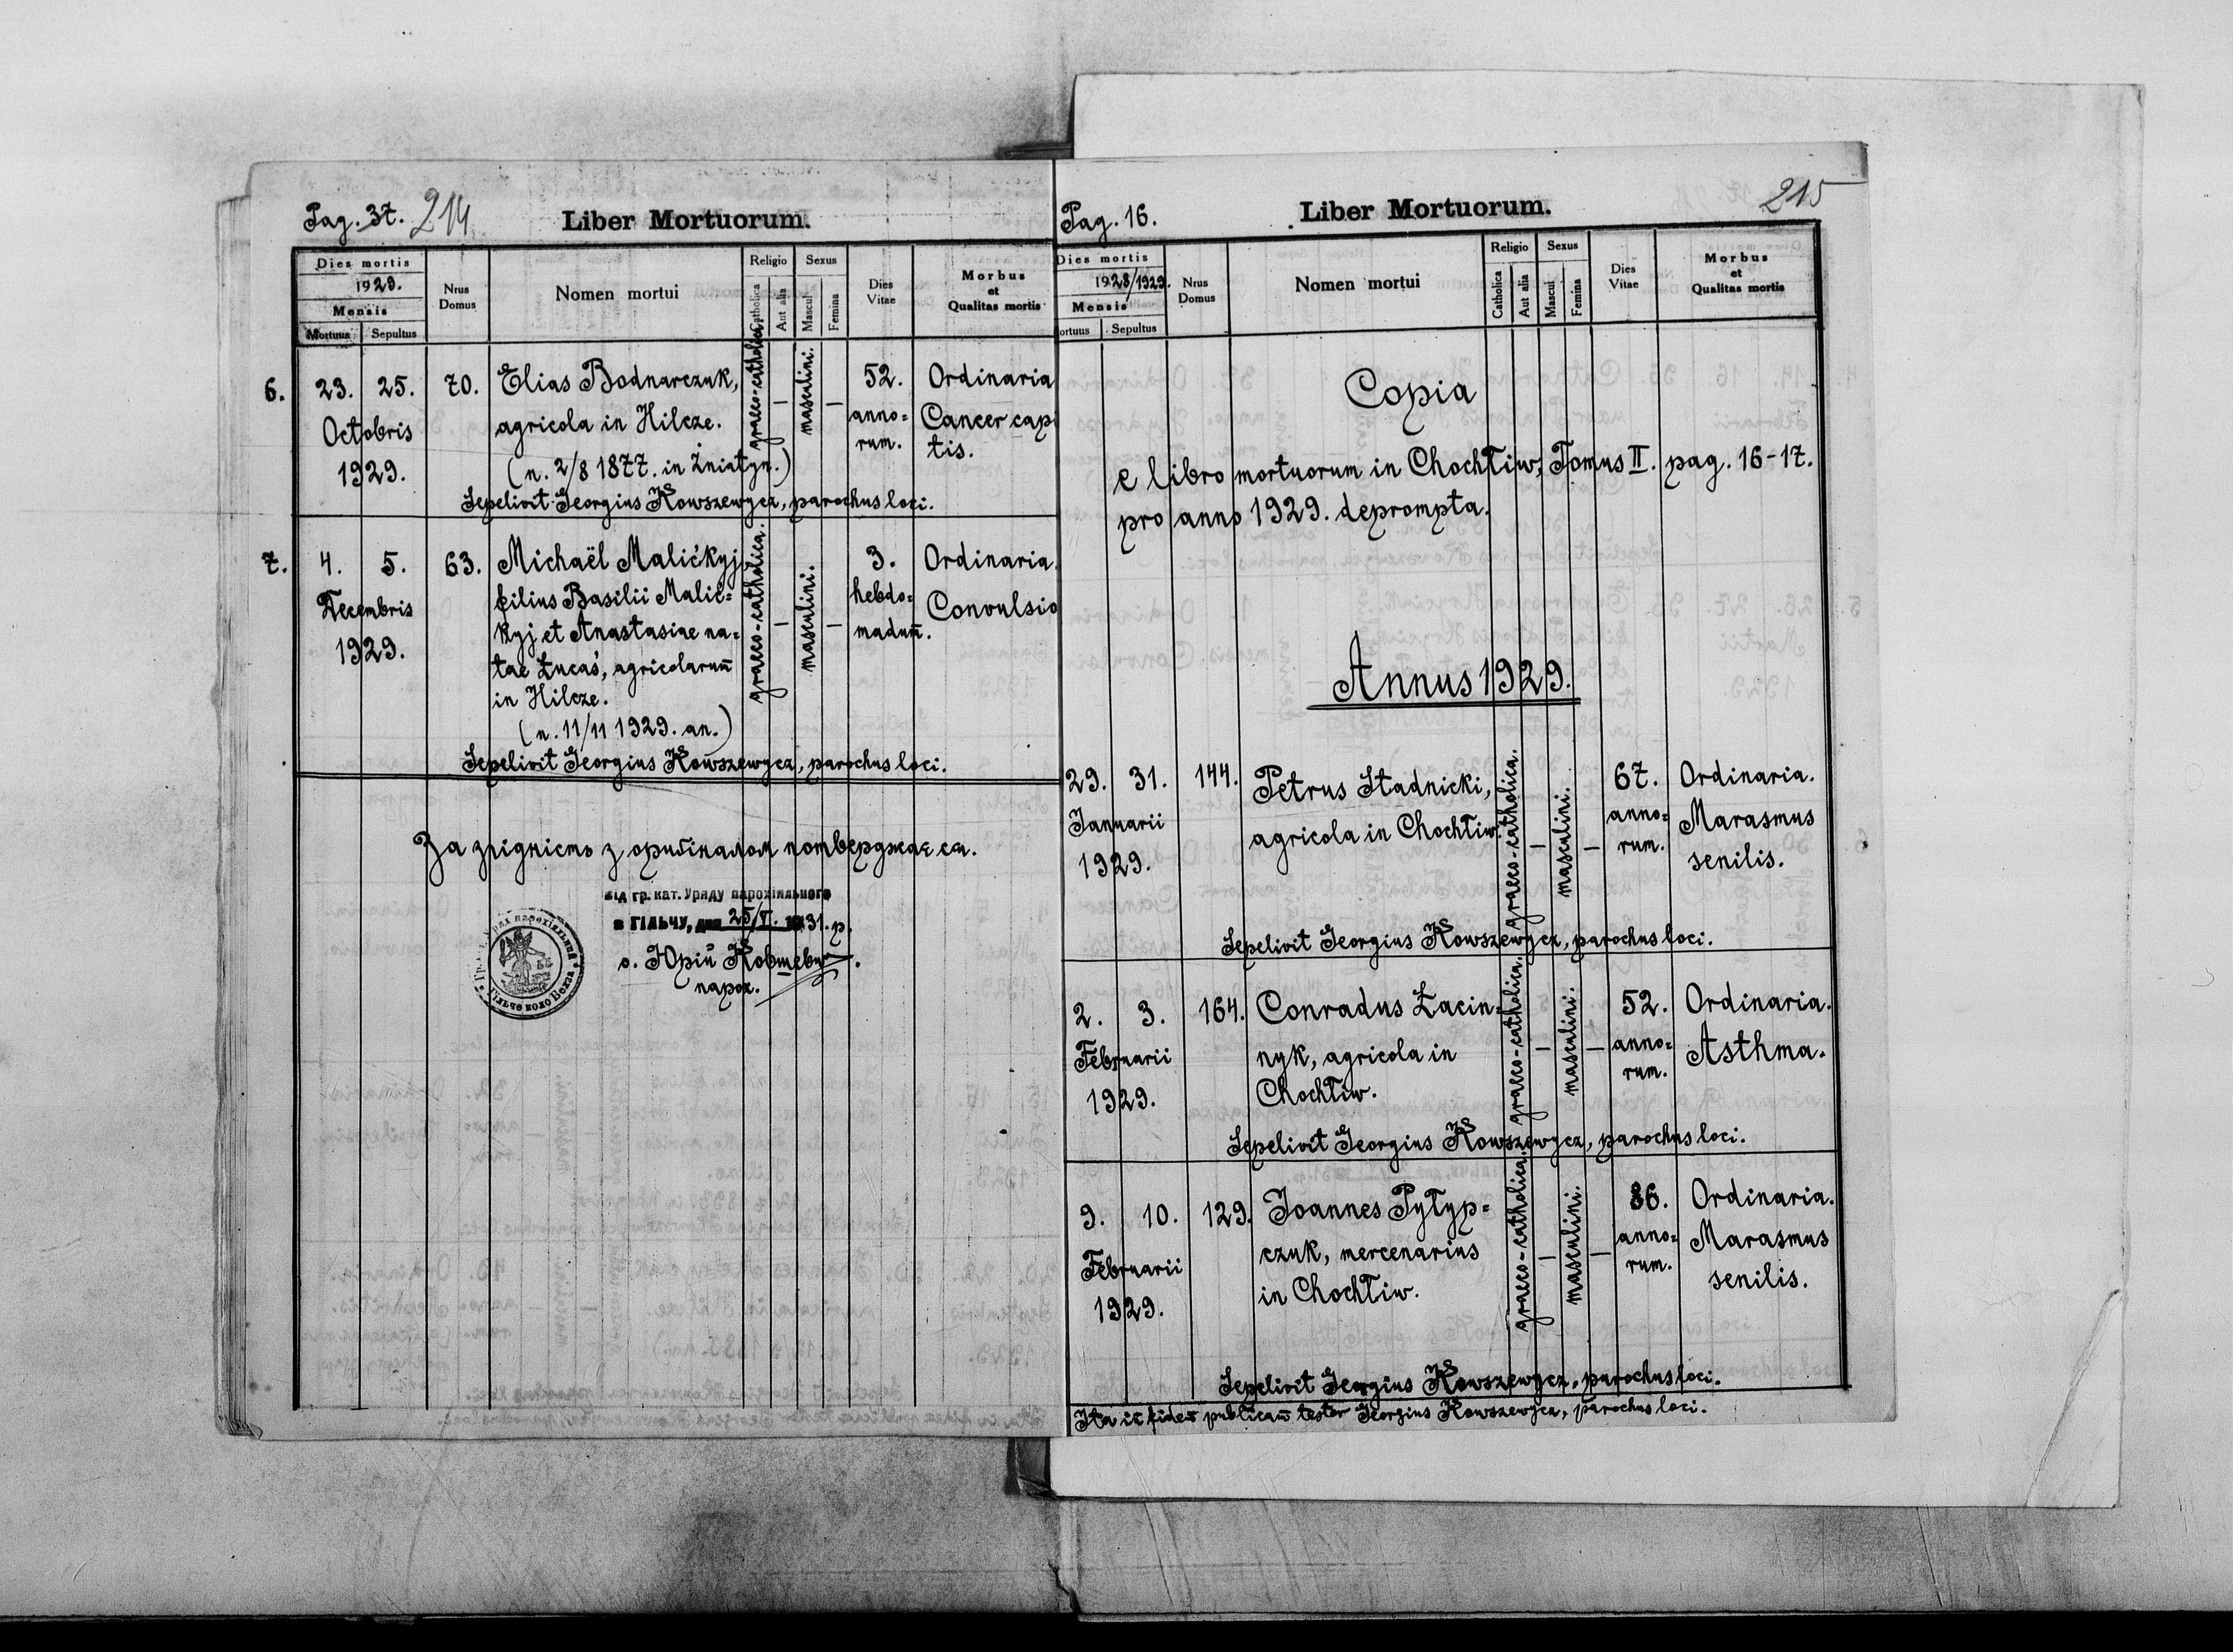 Pag. 37. 214
Liber Mortuorum.
Dies mortis
1929.
Mensis
Mortuus Sepultus
Nrus Domus
Nomen mortui
Religio
Catholica
Aut alia
Sexus
Mascul
Femina
Dies Vitae
Morbus
et
Qualitas mortis
6. 23. 25. 70. Elias Bodnarczuk, graeco-catholica. — masculini. — 52. Ordinaria
Octobris agricola in Hilcze. anno= Cancer capi
1929. (n. 2/8 1877. in Żniatyn.) rum. tis.
Sepelivit Georgius Kowszewycz, parochus loci.
7. 4. 5. 63. Michaël Malićkyj graeco-catholica. — masculini. — 3. Ordinaria.
Decembris filius Basilii Malić= hebdo= Convulsio
1929. kyj et Anastasiae na= madum̄.
tae Łucaś, agricolarum̄
in Hilcze.
(n. 11/11 1929. an.)
Sepelivit Georgius Kowszewycz, parochus loci.
За згідність з оригіналом потверджає ся.
від гр. кат. Уряду парохіяльного
в ГІЛЬЧУ, дня 25/V. 1931. р.
о. Юрій Ковшевич.
парох.
Гільче коло Белза
Pag. 16.
Liber Mortuorum.
215
Dies mortis
1928/1929.
Mensis
ortuus Sepultus
Nrus Domus
Nomen mortui
Religio
Catholica
Aut alia
Sexus
Mascul
Femina
Dies Vitae
Morbus
et
Qualitas mortis
Copia
e libro mortuorum in Chochłiw, Tomus II. pag. 16-17.
pro anno 1929. deprompta.
Annus 1929.
29. 31. 144. Petrus Stadnicki, graeco-catholica. — masculini. — 67. Ordinaria.
Januarii agricola in Chochłiw. anno= Marasmus
1929. rum. senilis.
Sepelivit Georgius Kowszewycz, parochus loci.
2. 3. 164. Conradus Łacin= graeco-catholica. — masculini. — 52. Ordinaria.
Februarii nyk, agricola in anno= Asthma.
1929. Chochłiw. rum.
Sepelivit Georgius Kowszewycz, parochus loci.
9. 10. 129. Joannes Pyłyp= graeco-catholica. — masculini. — 86. Ordinaria.
Februarii czuk, mercenarius anno= Marasmus
1929. in Chochłiw. rum. senilis.
Sepelivit Georgius Kowszewycz, parochus loci.
Ita in̄ fidem̄ publicam̄ testor Georgius Kowszewycz, parochus loci.